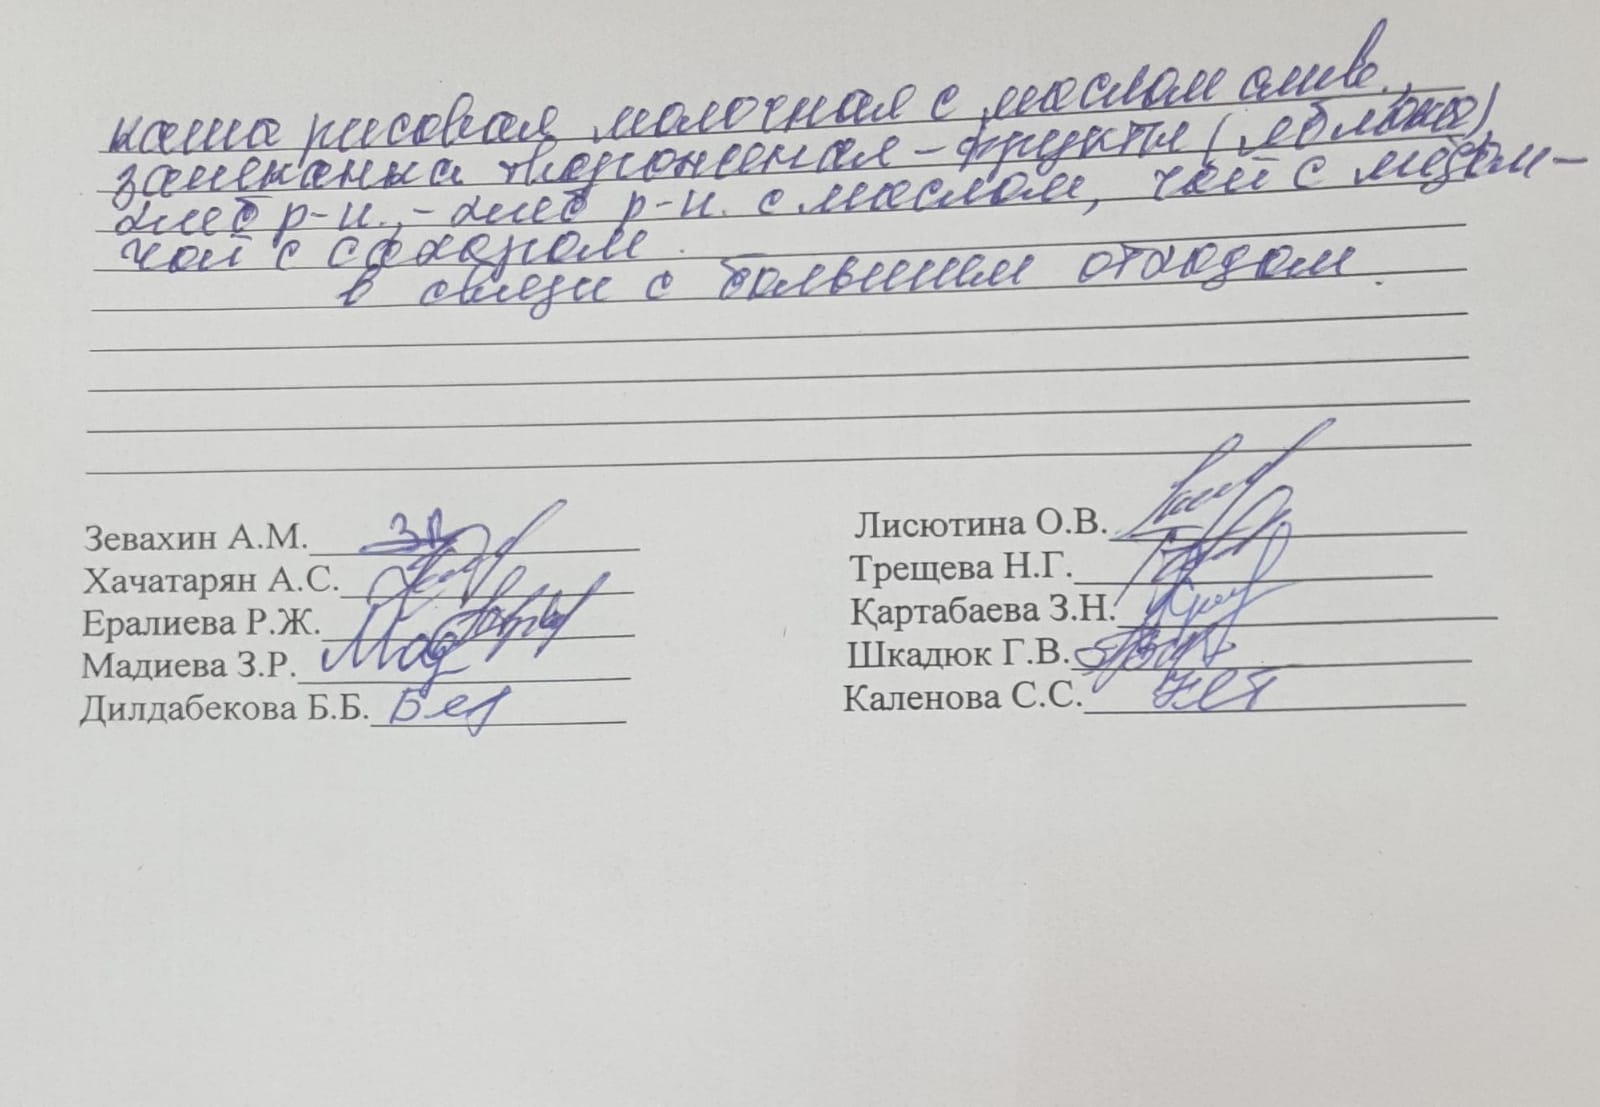 каша рисовая молочная с маслом слив.,
запеканка творожная - фрукты (яблоко),
хлеб р-н., - хлеб р-н. с маслом, чай с медом -
чай с сахаром.
в связи с большим отходом.
Зевахин А.М.
Хачатарян А.С.
Ералиева Р.Ж.
Мадиева З.Р.
Дилдабекова Б.Б.
Лисютина О.В.
Трещева Н.Г.
Қартабаева З.Н.
Шкадюк Г.В.
Каленова С.С.